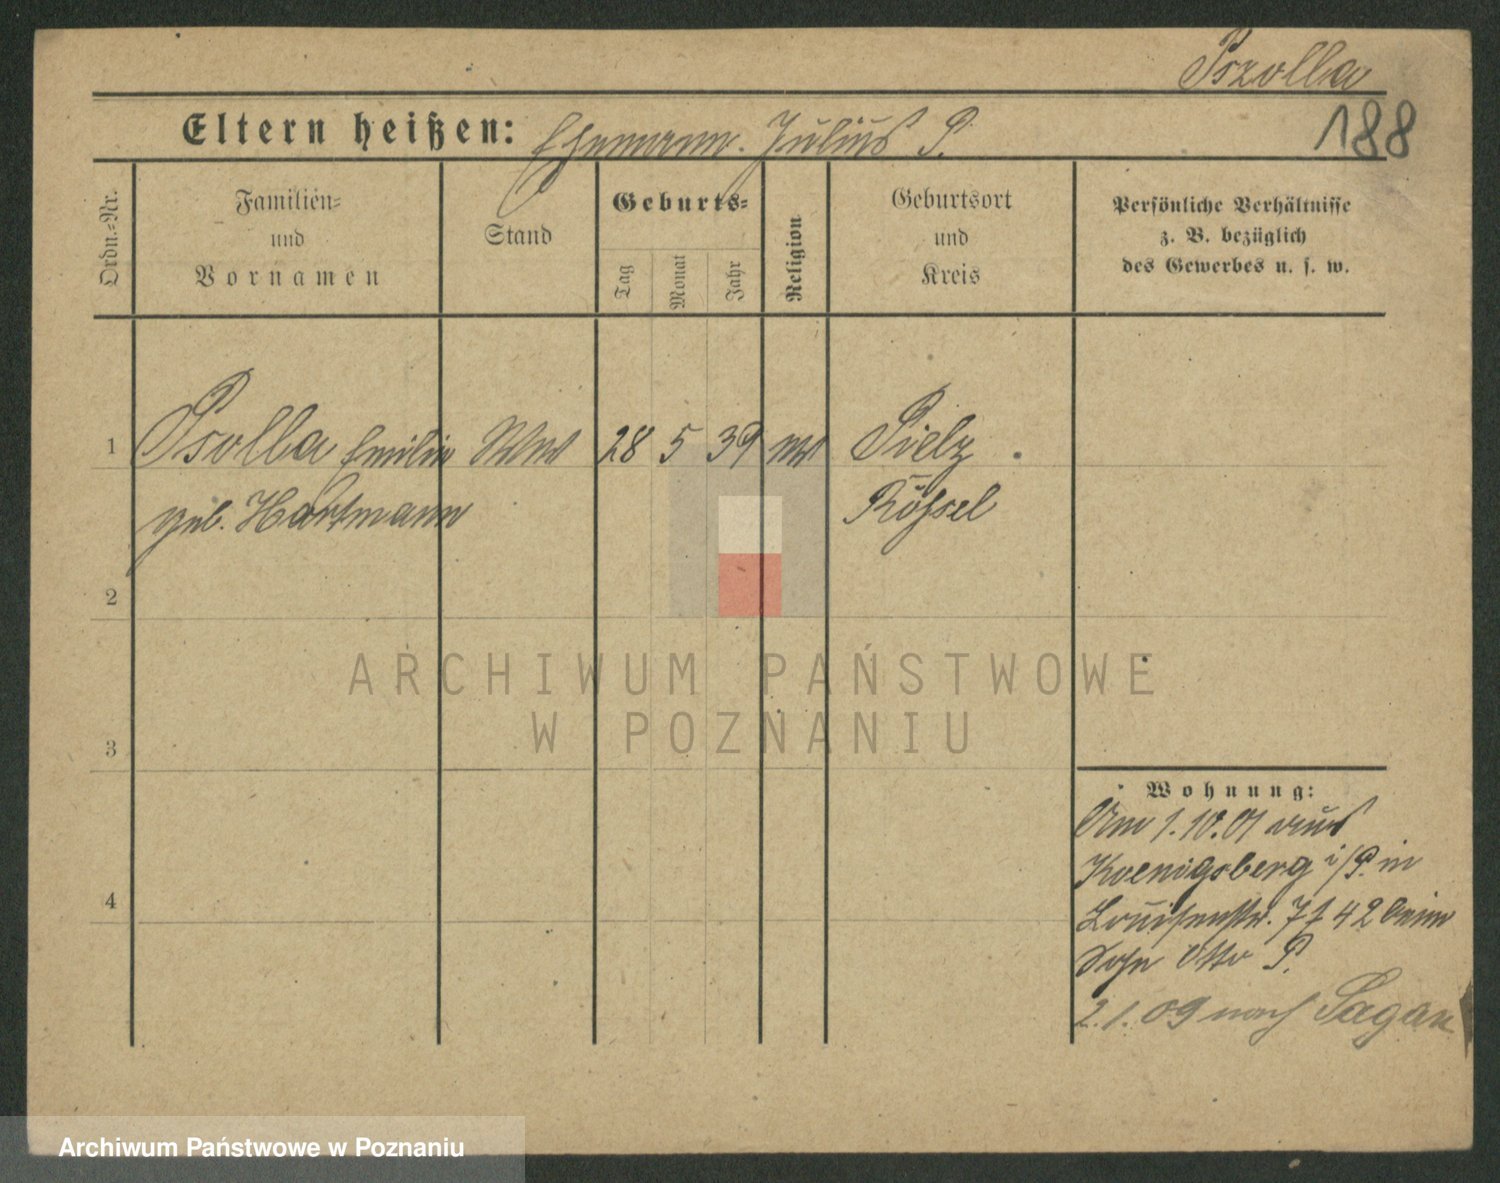 Pszolla
188
Eltern heißen: Ehemann. Julius P.
Ordn.-Nr.
Familien-
und
Vornamen
Stand
Geburts-
Tag
Monat
Jahr
Religion
Geburtsort
und
Kreis
Persönliche Verhältnisse
z. B. bezüglich
des Gewerbes u. s. w.
1 Psolla Emilie Wwe 28 5 39 ev Pielz
geb. Hartmann Rößel
2
ARCHIWUM PAŃSTWOWE
W POZNANIU
3
Wohnung:
Am 1.10.01 aus
Koenigsberg i/P. in
Louisenstr. 7 f 42 beim
Sohn Otto P.
4
2.1.09 nach Sagan
Archiwum Państwowe w Poznaniu